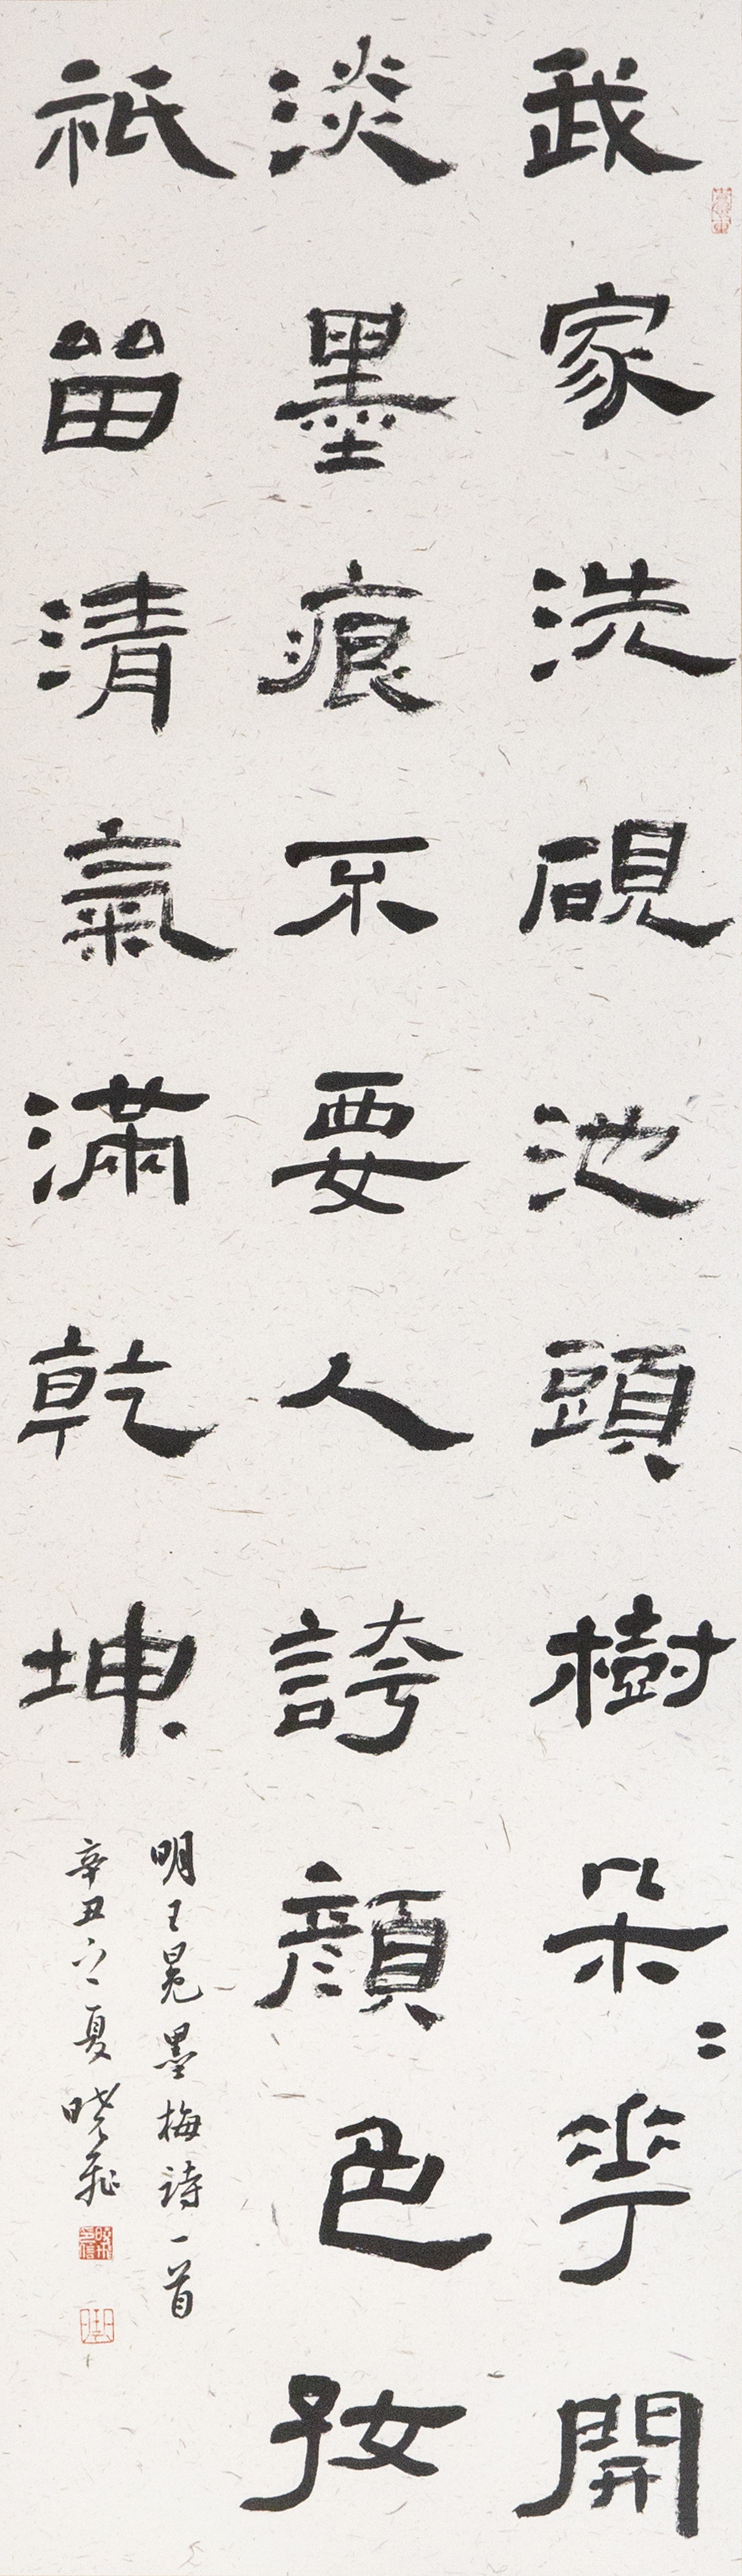 我家洗硯池頭樹朵〻華開
淡墨痕不要人誇顏色好
祇留清氣滿乾坤
明王冕墨梅詩一首
辛丑之夏晓